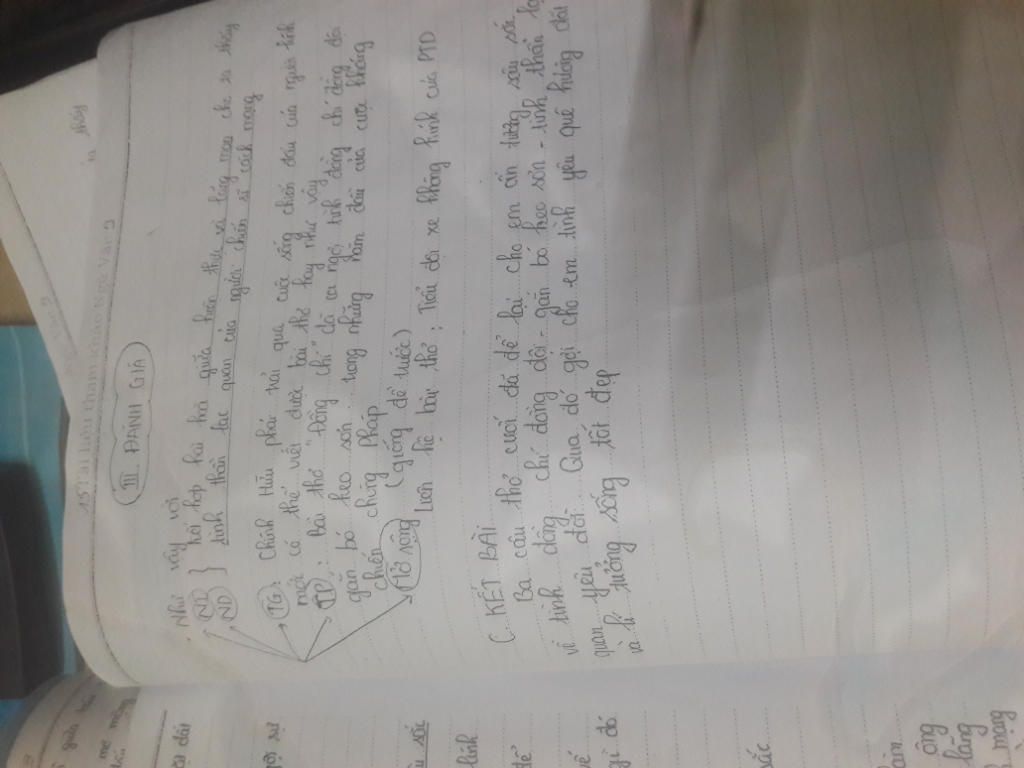 157 Tài liệu tham khảo Ngữ Văn 9
III. ĐÁNH GIÁ
Như vậy với
ND } hồi hợp hài hoà giữa hiện thực và lãng mạn cho ta thấy
ND } tinh thần lạc quan của người chiến sĩ cách mạng
TG: Chính Hữu phải trải qua cuộc sống chiến đấu của người lính
mới có thể viết được bài thơ hay như vậy
TP: Bài thơ "Đồng chí" đã ca ngợi tình đồng chí đồng đội
gắn bó keo sơn trong những năm đầu của cuộc kháng
chiến chống Pháp
Mở rộng (giống đề trước)
Liên hệ bài thơ: Tiểu đội xe không kính của PTD
C. KẾT BÀI
Ba câu thơ cuối đã để lại cho em ấn tượng sâu sắc
về tình đồng chí đồng đội - gắn bó keo sơn - tinh thần lạc
quan yêu đời. Qua đó gợi cho em tình yêu quê hương đất
và lí tưởng sống tốt đẹp